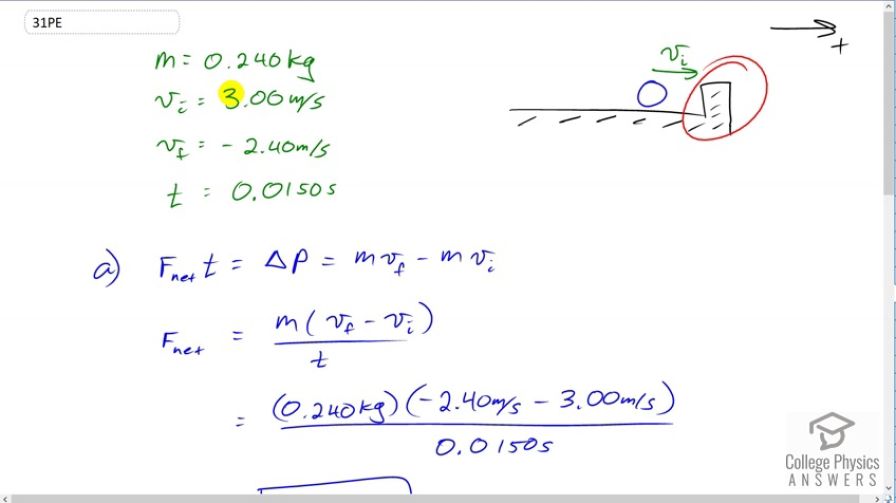 31PE
m = 0.240 kg
v_i = 3.00 m/s
v_f = - 2.40 m/s
t = 0.0150 s
v_i
+
a) F_net t = ΔP = m v_f - m v_i
F_net = m ( v_f - v_i ) / t
= (0.240 kg) (-2.40 m/s - 3.00 m/s) / 0.0150 s
College Physics
ANSWERS